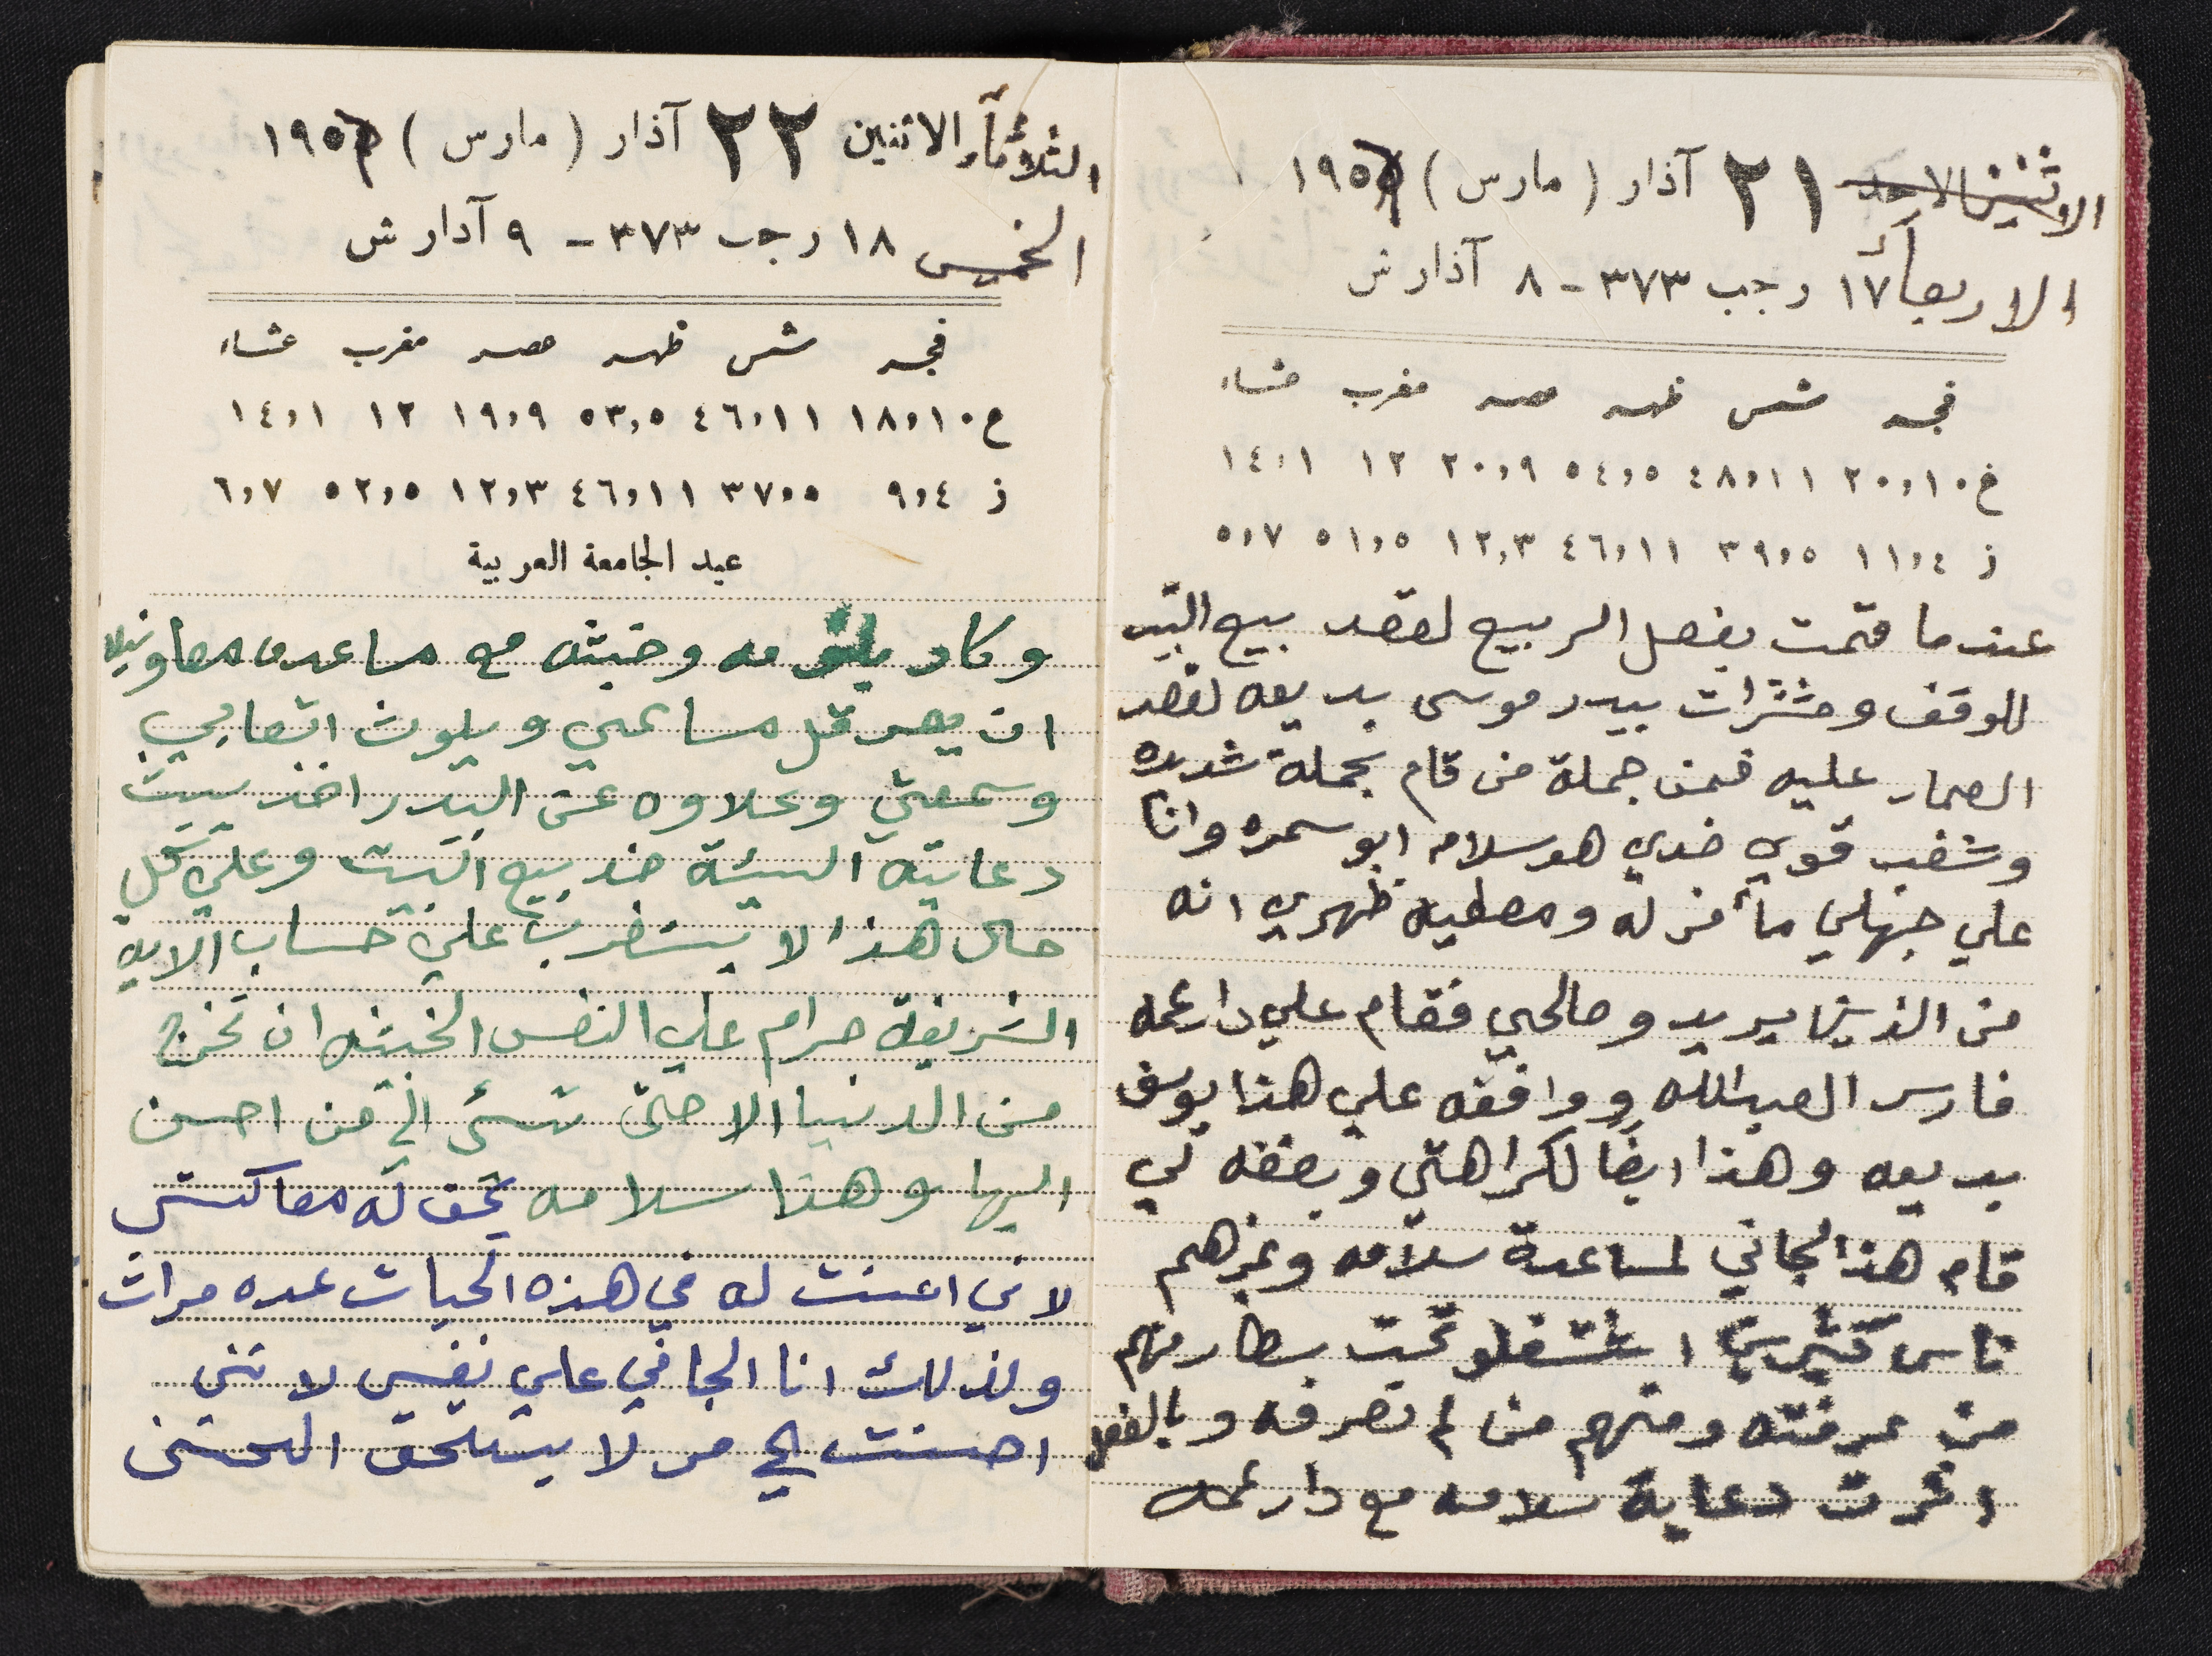 الاثنين الاحد ٢١ آذار ( مارس ) ١٩٥
الاربعاء ١٧ رجب ٣٧٣ - ٨ آذار ش
فجر شمس ظهر عصر مغرب عشاء
غ ١٠،٢٠ ١١،٤٨ ٥،٥٤ ٩،٢٠ ١٢ ١،١٤
ز ٤،١١ ٥،٣٩ ١١،٤٦ ٣،١٢ ٥،٥١ ٧،٥
عندما قمت بفصل الربيع لقصد بيع البيت
للوقف ومشترات بيدر موسى بديعه لقصد
العمار عليه فمن جملة من قام بحملة شديده
وشغب قوي ضدي هو سلامه ابو سمره وانا
علي جهلي مأمن له ومعطيه ظهري انه
من الذين يريدو صالحي فقام علي دار عمه
فارس العبدالله ووافقه علي هذا يوسف
بديعه وهذا ايضاً لكراهتي وبغضه لي
قام هذا الجاني لمساعدة سلامه وغيرهم
ناس كثيرين اشتغلو تحت منهم
من عرفته ومنهم من لم نعرفه وبالفعل
اثرت دعاية سلامه مع دار عمه
الثلاثاء الاثنين ٢٢ آذار ( مارس ) ١٩٥
الخميس ١٨ رجب ٣٧٣ - ٩ آذار ش
فجر شمس ظهر عصر مغرب عشاء
ع ١٠،١٨ ١١،٤٦ ٥،٥٣ ٩،١٩ ١٢ ١،١٤
ز ٤،٩ ٥،٣٧ ١١،٤٦ ٣،١٢ ٥،٥٢ ٧،٦
عيد الجامعة العربية
وكاد وخبثه مع مساعدة معاونيه
ان يعرقل مساعي ويلوث اتعابي
وسمعتي وعلاوه عن البيدر اخذ يبث
دعايته السيئة ضد بيع البيت وعلي كل
حال هذا لا يستغرب علي حساب الايه
الشريفة حرام علي النفس الخبيثه ان تخرج
من الدنيا الا حتى تسئ الي من احسن
اليها وهذا سلامه يحق له معاكستي
لاني اعنت له في هذه الحيات عده مرات
ولذلك انا الجاني علي نفسي لانني
احسنت الي من لا يستحق الحسنى